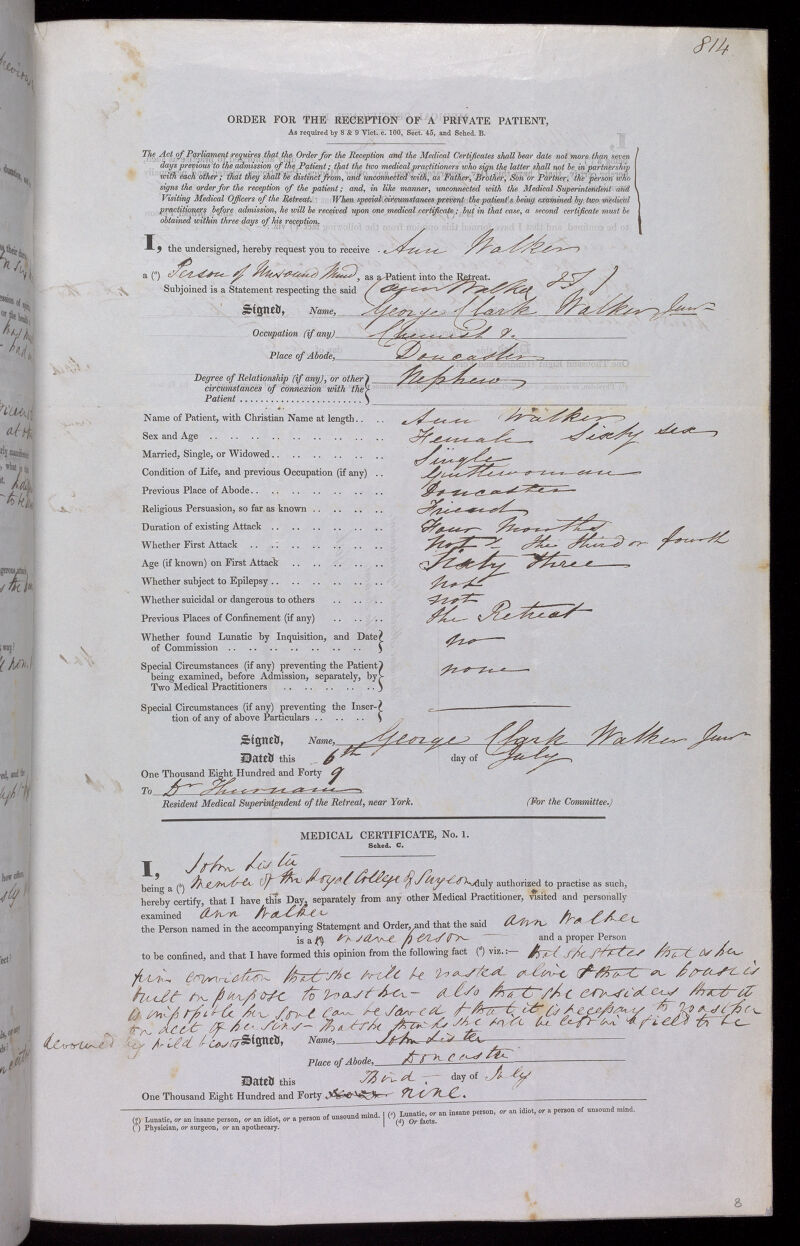 814
ORDER FOR THE RECEPTION OF A PRIVATE PATIENT,
As required by 8 & 9 Vict. c. 100, Sect. 45, and Sched. B.
The Act of Parliament requires that the Order for the Reception and the Medical Certificates shall bear date not more than seven
days previous to the admission of the Patient; that the two medical practitioners who sign the latter shall not be in partnership
with each other; that they shall be distinct from, and unconnected with, as Father, Brother, Son or Partner, the person who
signs the order for the reception of the patient; and, in like manner, unconnected with the Medical Superintendent and
Visiting Medical Officers of the Retreat. When special circumstances prevent the patient's being examined by two medical
practitioners before admission, he will be received upon one medical certificate; but in that case, a second certificate must be
obtained within three days of his reception.
I, the undersigned, hereby request you to receive Ann Walker
a (a) Person of Unsound Mind, as a Patient into the Retreat.
Subjoined is a Statement respecting the said Ann Walker
Signed, Name, George Clark Walker Junr
Occupation (if any) Chemist &.
Place of Abode, Doncaster
Degree of Relationship (if any), or other circumstances of connexion with the Patient Nephew
Name of Patient, with Christian Name at length Ann Walker
Sex and Age Female Sixty six
Married, Single, or Widowed Single
Condition of Life, and previous Occupation (if any) Gentlewoman
Previous Place of Abode Doncaster
Religious Persuasion, so far as known Friend
Duration of existing Attack Four Months
Whether First Attack Not the third or fourth
Age (if known) on First Attack Sixty three
Whether subject to Epilepsy Not
Whether suicidal or dangerous to others Not
Previous Places of Confinement (if any) The Retreat
Whether found Lunatic by Inquisition, and Date of Commission No
Special Circumstances (if any) preventing the Patient being examined, before Admission, separately, by Two Medical Practitioners none
Special Circumstances (if any) preventing the Insertion of any of above Particulars
Signed, Name, George Clark Walker Junr
Dated this 6th day of July
One Thousand Eight Hundred and Forty 9
To Dr Thurnam
Resident Medical Superintendent of the Retreat, near York. (For the Committee.)
MEDICAL CERTIFICATE, No. 1.
Sched. C.
I, John Lister
being a (b) Member of the Royal College of Surgeons duly authorized to practise as such,
hereby certify, that I have this Day, separately from any other Medical Practitioner, visited and personally
examined Ann Walker
the Person named in the accompanying Statement and Order, and that the said Ann Walker
is a (c) insane person and a proper Person
to be confined, and that I have formed this opinion from the following fact (d) viz.:— that she states that is her
firm conviction that she will be roasted alive & that a house is
built on purpose to roast her - also that she considers that it
is impossible her soul can be saved & that it is necessary to roast her
on acct of her sins - that she thinks she will be left in a field to be
devoured by wild beasts
Signed, Name, John Lister
Place of Abode, Doncaster
Dated this Third day of July
One Thousand Eight Hundred and Forty nine.
(a) Lunatic, or an insane person, or an idiot, or a person of unsound mind.
(b) Physician, or surgeon, or an apothecary.
(c) Lunatic, or an insane person, or an idiot, or a person of unsound mind.
(d) Or facts.
8